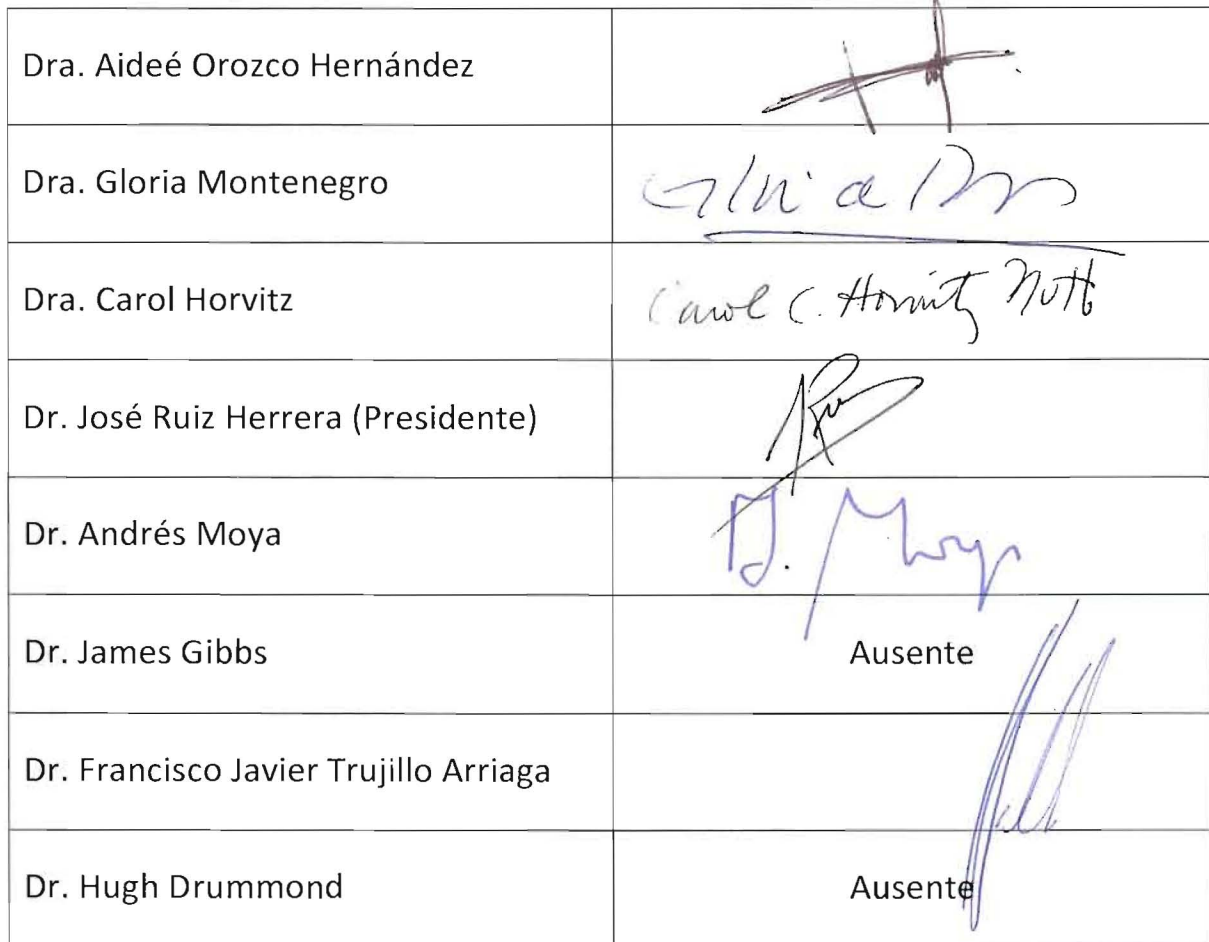 Dra. Aideé Orozco Hernández
Dra. Gloria Montenegro
Dra. Carol Horvitz
Carol C. Horvitz
Dr. José Ruiz Herrera (Presidente)
Dr. Andrés Moya
A. Moya
Dr. James Gibbs
Ausente
Dr. Francisco Javier Trujillo Arriaga
Dr. Hugh Drummond
Ausente